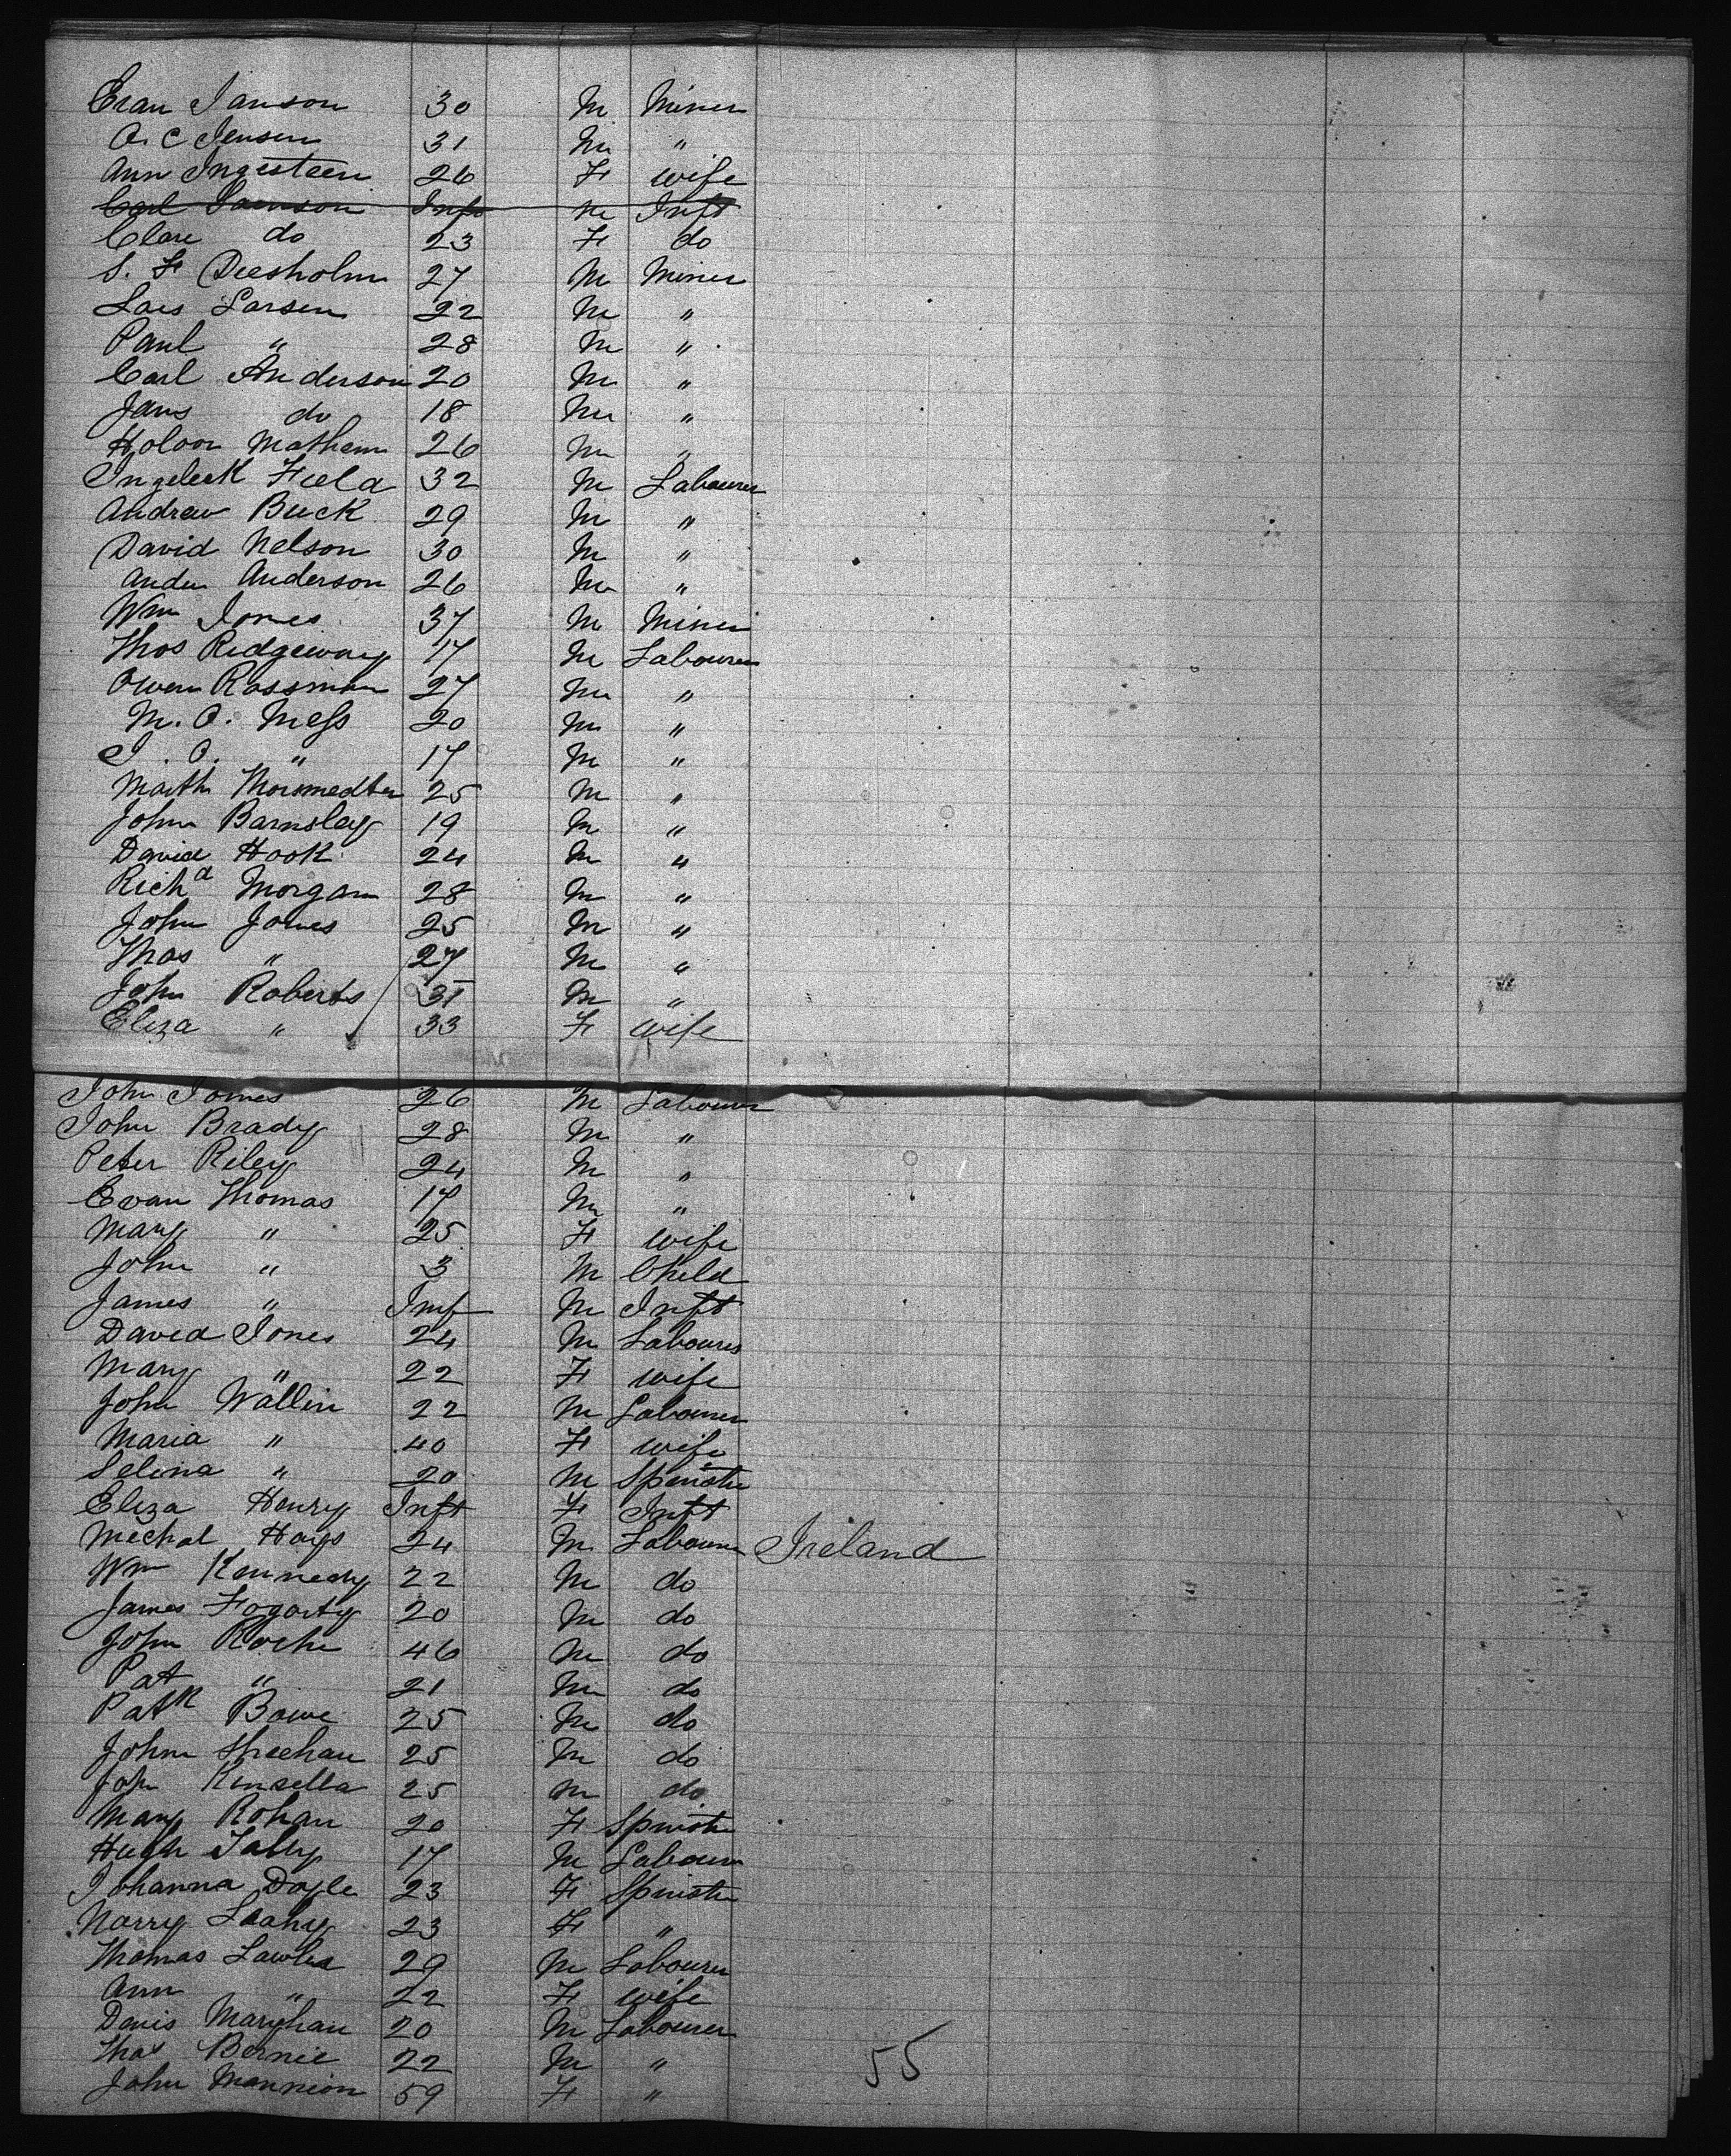 Evan Janson 30 M Miner
O. C Jensen 31 M "
Ann Ingesteen 26 F wife
Carl Samson Inft M Inft
Clare do 23 F do
S. F Deesholm 27 M Miner
Lars Larsen 22 M "
Paul " 28 M "
Carl Anderson 20 M "
Jans do 18 M "
Holoor Mathem 26 M "
Ingeleck Fiela 32 M Labourer
Andrew Buck 29 M "
David Nelson 30 M "
Ander Anderson 26 M "
Wm Jones 37 M Miner
Thos Ridgeway 17 M Labourer
Owen Rossman 27 M "
M. O. Mess 20 M "
J. O. " 17 M "
Marth 25 M "
John Barnsley 19 M "
David Hook 24 M "
Richd Morgan 28 M "
John Jones 25 M "
Thos " 27 M "
John Roberts 31 M "
Eliza " 33 F wife
John Jones 26 M Labourer
John Brady 28 M "
Peter Riley 24 M "
Evan Thomas 17 M "
Mary " 25 F wife
John " 3 M Child
James " Inf M Inft
David Jones 24 M Labourer
Mary " 22 F wife
John Wallin 22 M Labourer
Maria " 40 F wife
Selina " 20 M Spinster
Eliza Henry Inft F Inft
Mechal Hays 24 M Labourer Ireland
Wm Kennedy 22 M do
James Fogarty 20 M do
John Roche 46 M do
Pat " 21 M do
Patk Bowe 25 M do
John Sheehan 25 M do
John Kinsella 25 M do
Mary Rohan 20 F Spinster
Hugh Tally 17 M Labourer
Johanna Doyle 23 F Spinster
Norry Leahy 23 F "
Thomas Lawless 29 M Labourer
Ann " 22 F wife
Denis Maryhan 20 M Labourer
Thos Bernie 22 M "
John Mannion 59 F "
55